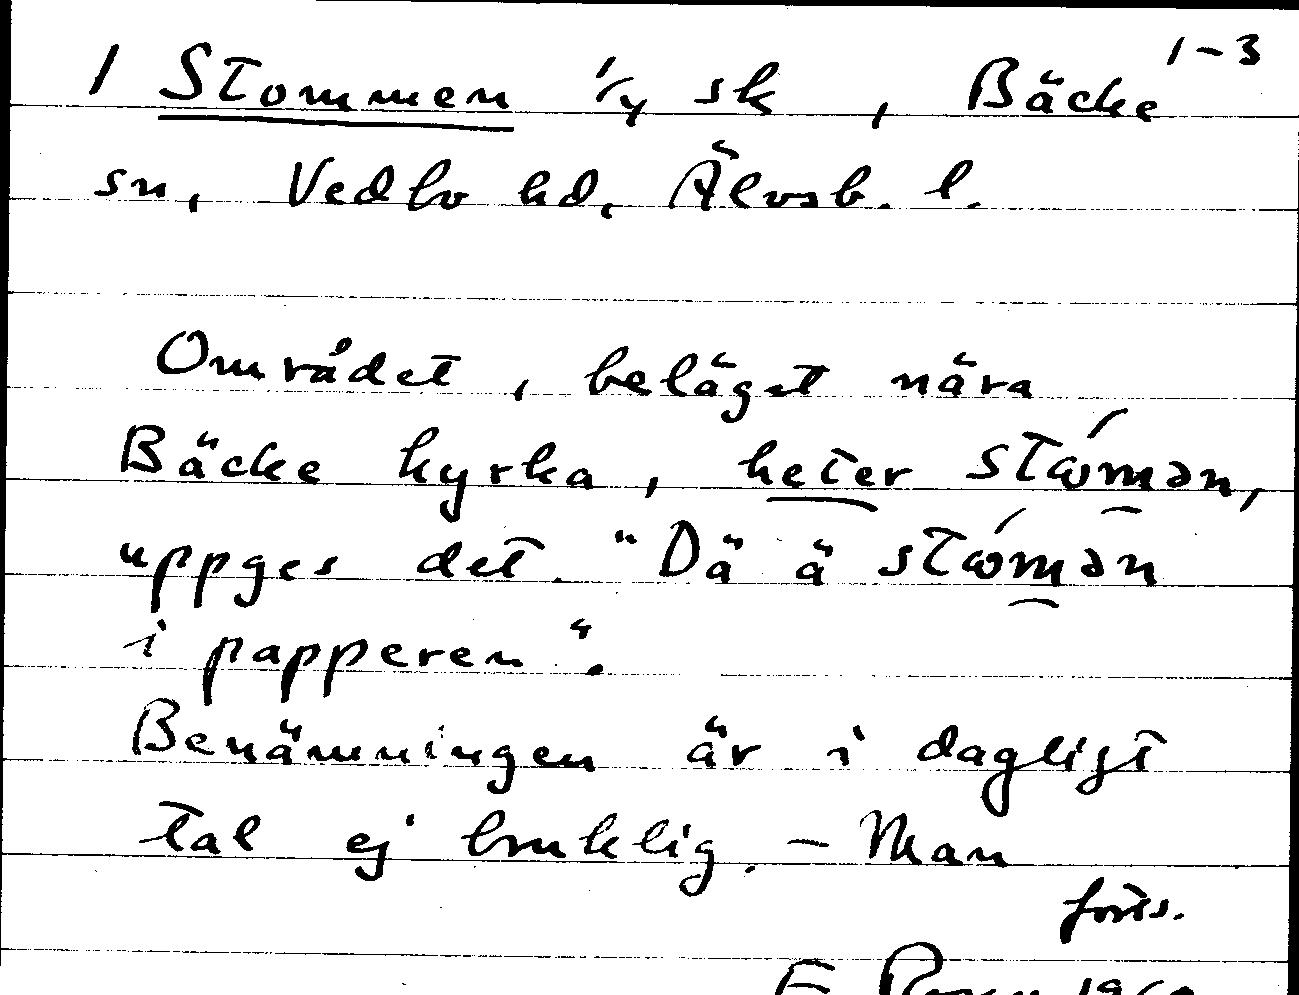 1 Stommen 1/4 sk, Bäcke 1-3
sn, Vedbo hd, Älvsb. l.
Området, beläget nära
Bäcke kyrka, heter stώmən,
uppges det. "Dä ä stώmən
i papperen".
Benämningen är i dagligt
tal ej bruklig. – Man
forts.